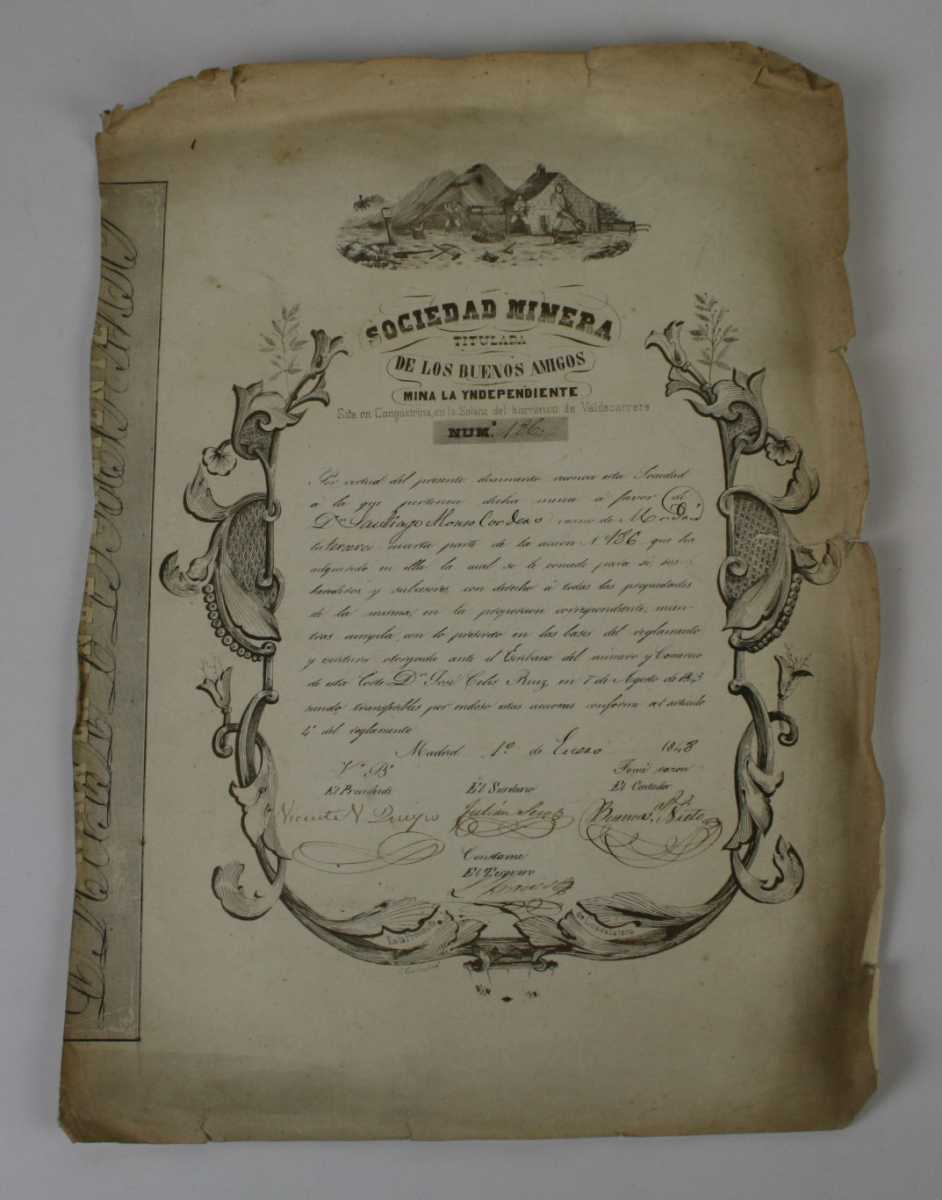 SOCIEDAD MINERA
TITULADA
DE LOS BUENOS AMIGOS
MINA LA YNDEPENDIENTE
Sita en Congostrina, en la Solana del barranco de Valdecarrera
NUM.º 136
Por virtud del presente documento reconoce esta Sociedad
á la que pertenece dicha mina á favor de
Dⁿ Santiago Alonso Cordero vecino de Madrid
la tercera cuarta parte de la accion N. 136 que ha
adquirido en ella la cual se le concede para sí, sus
herederos y subcesores con derecho á todas las propiedades
de la misma, en la proporcion correspondiente, mien-
tras cumpla con lo prescrito en las bases del reglamento
y escritura otorgada ante el Escribano del número y Comercio
de esta Corte Dⁿ José Celis Ruiz, en 7 de Agosto de 1843
siendo transferibles por endoso estas acciones conforme al articulo
4º del reglamento
Madrid 1º de Enero 1848
Vº Bº
El Presidente
El Secretario
Tomé razon
El Contador
Vicente
Julián
Nieto
Constame
El Tesorero